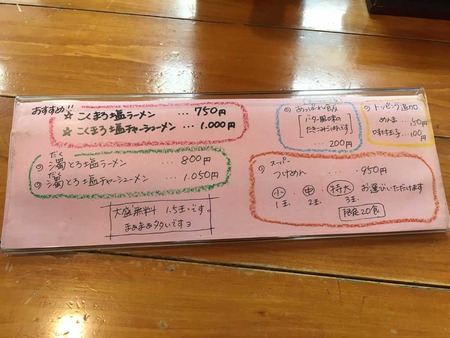 おすすめ!!
☆ こくまろ塩ラーメン … 750円
☆ こくまろ塩チャーシューメン … 1.000円
だく
濁とろ塩ラーメン 800円
だく
濁とろ塩チャーシューメン … 1.050円
大盛無料 1.5玉です。
[バター風味の
たきこみごはんです]
… 200円
トッピング追加
めんま …50円
味付玉子…100円
スーパー
つけめん … 950円
小 中 特大 お選びいただけます
1玉 2玉 3玉
限定20食